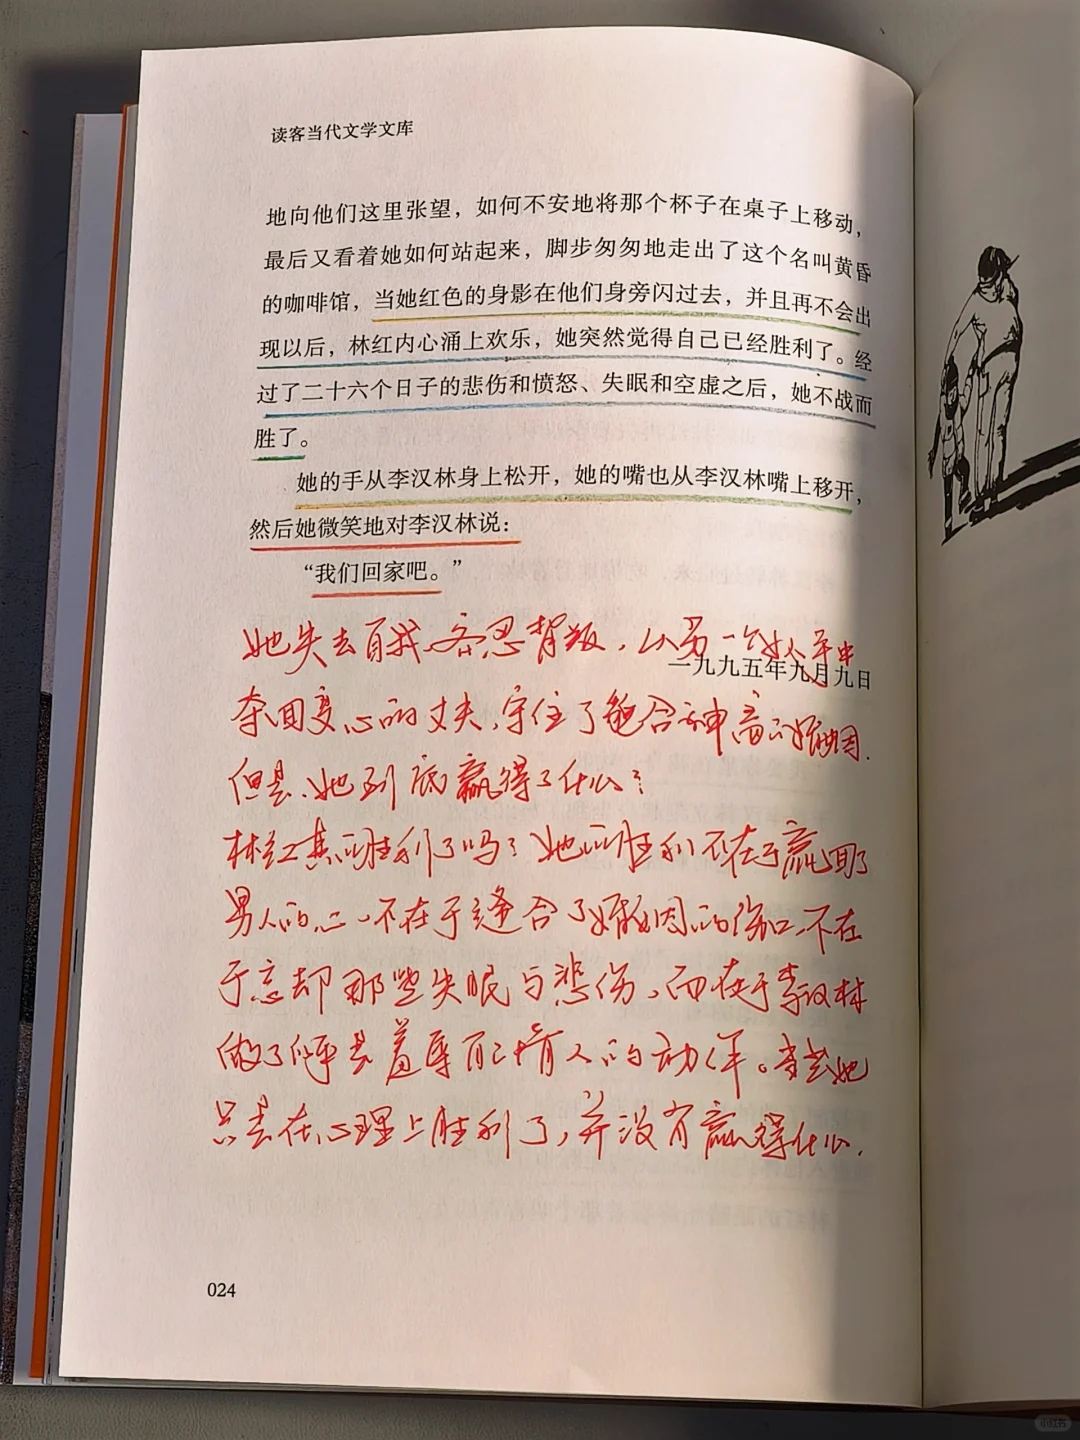 读客当代文学文库
地向他们这里张望，如何不安地将那个杯子在桌子上移动，
最后又看着她如何站起来，脚步匆匆地走出了这个名叫黄昏
的咖啡馆，当她红色的身影在他们身旁闪过去，并且再不会出
现以后，林红内心涌上欢乐，她突然觉得自己已经胜利了。经
过了二十六个日子的悲伤和愤怒、失眠和空虚之后，她不战而
胜了。
她的手从李汉林身上松开，她的嘴也从李汉林嘴上移开，
然后她微笑地对李汉林说：
“我们回家吧。”
她失去自我、容忍背叛，从另一个女人手中
一九九五年九月九日
夺回变心的丈夫，守住了貌合神离的婚姻.
但是，她到底赢得了什么？
林红真的胜利了吗？她的胜利不在于赢回了
男人的心、不在于缝合了婚姻的伤口、不在
于忘却那些失眠与悲伤，而在于李汉林
做了停 羞辱 情人的动作。 她
只是在心理上胜利了，并没有赢得什么.
024
小红书